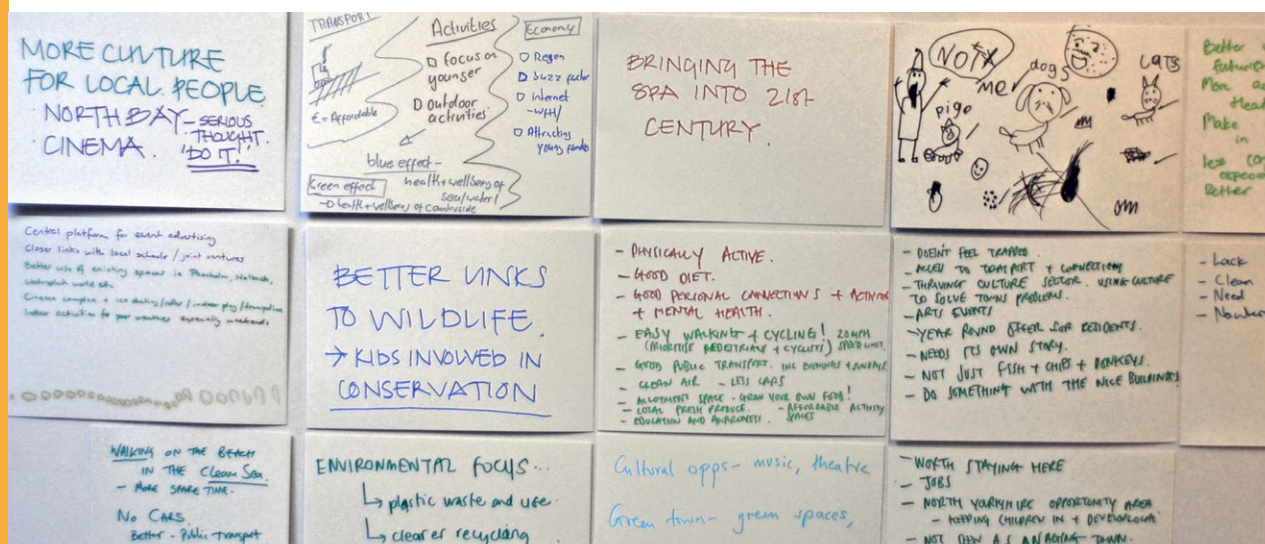 MORE CULTURE
FOR LOCAL PEOPLE
NORTH BAY - SERIOUS
THOUGHT.
CINEMA. 'DO IT!'
TRANSPORT
£ = Affordable
Activities
focus on
younger
outdoor
activities
Economy
Regen
buzz factor
internet
- WFH/
Attracting
young
blue effect -
health + wellbeing of
sea/water/
Green effect
health + wellbeing of countryside
BRINGING THE
SPA INTO 21st
CENTURY.
NOT
me
dogs
cats
pigs
Better
More
Make
in
less
Better
Central platform for event advertising
Closer links with local schools / joint ventures
Better use of existing spaces in
Cinema complex + ice skating / / indoor play / trampoline
Indoor activities for poor weather especially weekends
BETTER LINKS
TO WILDLIFE.
→ KIDS INVOLVED IN
CONSERVATION
- PHYSICALLY ACTIVE.
- GOOD DIET.
- GOOD PERSONAL CONNECTIONS +
+ MENTAL HEALTH.
- EASY WALKING + CYCLING! 20MPH
(PRIORITISE PEDESTRIANS + CYCLISTS) SPEED LIMIT.
- GOOD PUBLIC TRANSPORT. INC EVENINGS + SUNDAYS
- CLEAN AIR - LESS CARS
- ALLOTMENT SPACE - GROW YOUR OWN FOOD!
- LOCAL FRESH PRODUCE. - AFFORDABLE ACTIVITY
SPACES
- EDUCATION AND AWARENESS.
- DOESN'T FEEL TRAPPED.
- ACCESS TO TRANSPORT + CONNECTIONS
- THRIVING CULTURE SECTOR. USING CULTURE
TO SOLVE TOWNS PROBLEMS.
- ARTS EVENTS
- YEAR ROUND OFFER FOR RESIDENTS.
- NEEDS ITS OWN STORY.
- NOT JUST FISH + CHIPS + DONKEYS.
- DO SOMETHING WITH THE NICE BUILDINGS
- Lack
- Clean
- Need
WALKING ON THE BEACH
IN THE Clean Sea.
- MORE SPARE TIME.
NO CARS
Better - Public transport
ENVIRONMENTAL FOCUS...
↳ plastic waste and use
↳ clearer recycling
Cultural opps - music, theatre
Green town - green spaces,
- WORTH STAYING HERE
- JOBS
- NORTH YORKSHIRE OPPORTUNITY AREA
- KEEPING CHILDREN IN +
- NOT SEEN AS AN AGEING TOWN.